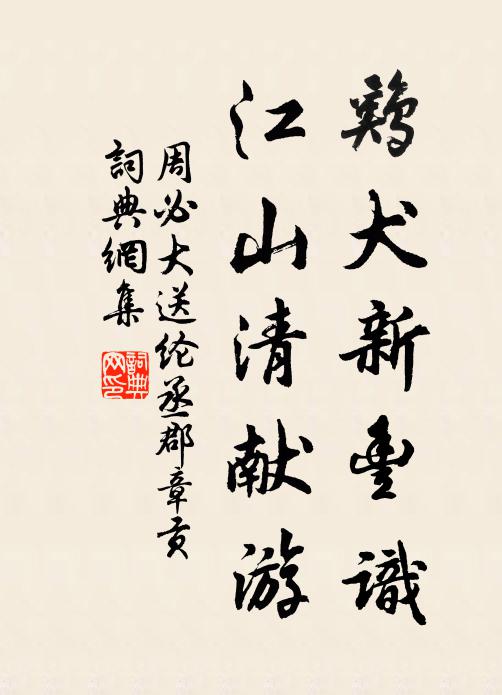 鷄犬新豐識
江山清献游
周必大送纶丞郡章貢
詞典網集
詞典网印